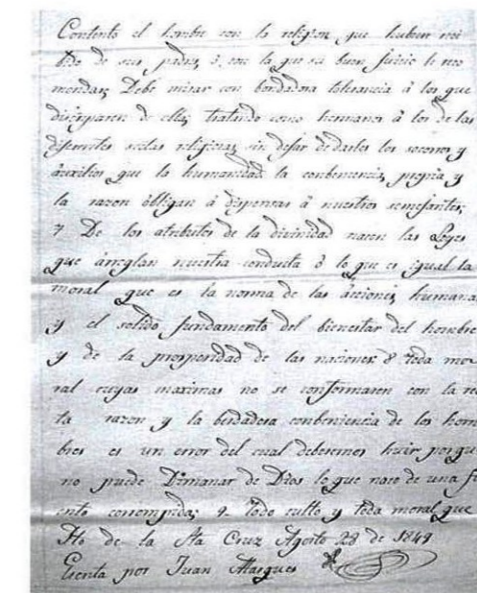 Contento el hombre con la religion que hubiere reci
bido de sus padres, ó con la que su buen juicio le reco
mendar, Debe mirar con bondadosa tolerancia á los que
discreparen de ella, tratando como hermanos á los de las
diferentes sectas religiosas, sin dejar de darles los socorros y
áuxilios que la humanidad la conbeniencia propia y
la razon óbligan á dispensar á nuestros semejantes,
7 De los atributos de la divinidad nacen las Leyes
que árreglan nuestra conducta ó lo que es igual la
moral que es la norma de las ácciones humanas
y el solido fundamento del bienestar del hombre
y de la prosperidad de las naciones: 8 toda mo
ral cuyas maximas no se conformaren con la rec
ta razon y la berdadera conbeniencia de los hom
bres es un error del cual deberemos huir porque
no puede Dimanar de Dios lo que nace de una fu
ente corrompida; 9. Todo culto y toda moral que
Pto de la Sta Cruz Agosto 28 de 1849
Escrita por Juan Marques